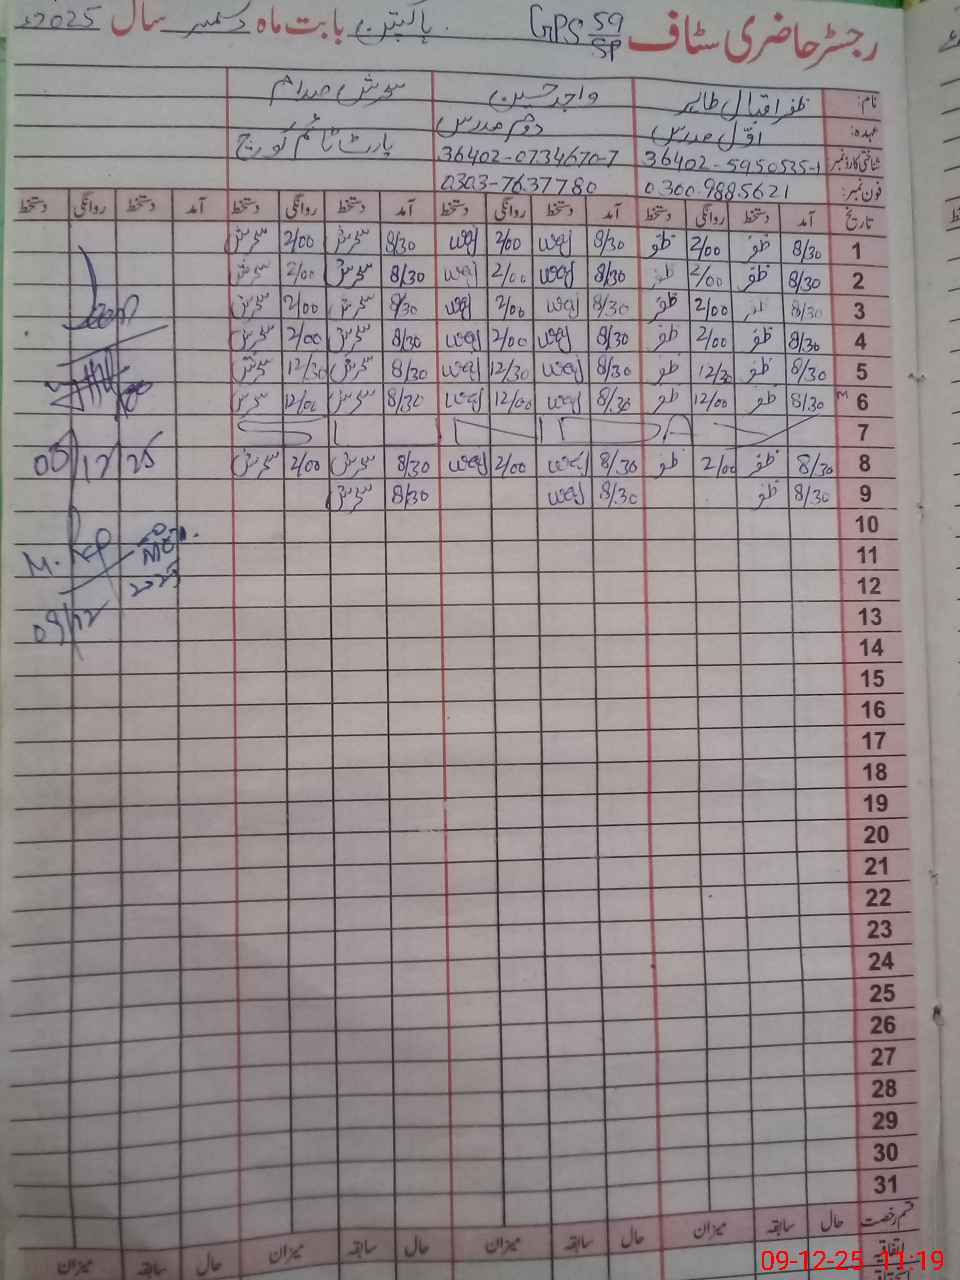 رجسٹر حاضری سٹاف GPS 59/SP پاکپتن بابت ماہ دسمبر سال 2025ء
نام: ظفر اقبال طاہر واجد حسین
عہدہ: اوّل مدرس دوئم مدرس پارٹ ٹائم کوچ
شناختی کارڈ نمبر 36402-5950535-1 36402-0734670-7
فون نمبر: 0300-9885621 0303-7637780
تاریخ آمد دستخط روانگی دستخط آمد دستخط روانگی دستخط آمد دستخط روانگی دستخط آمد دستخط روانگی دستخط
1 8/30 ظفر 2/00 ظفر 8/30 waj 2/00 waj 8/30 2/00
2 8/30 ظفر 2/00 ظفر 8/30 waj 2/00 waj 8/30 2/00
3 8/30 ظفر 2/00 ظفر 8/30 waj 2/00 waj 8/30 2/00
4 8/30 ظفر 2/00 ظفر 8/30 waj 2/00 waj 8/30 2/00
5 8/30 ظفر 12/30 ظفر 8/30 waj 12/30 waj 8/30 12/30
6 8/30 ظفر 12/00 ظفر 8/30 waj 12/00 waj 8/30 12/00
7
8 8/30 ظفر 2/00 ظفر 8/30 waj 2/00 waj 8/30 2/00
08/12/25
9 8/30 ظفر 8/30 waj 8/30
10
11
12
2025
13
09/12
14
15
16
17
18
19
20
21
22
23
24
25
26
27
28
29
30
31
قسم رخصت حال سابقہ میزان حال سابقہ میزان حال سابقہ میزان حال سابقہ میزان
اتفاقیہ
09-12-25 11:19